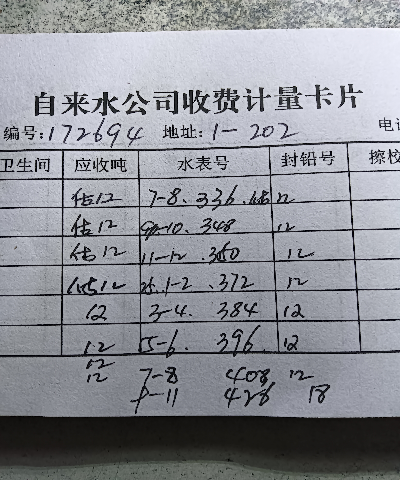 自来水公司收费计量卡片
编号:172694 地址:1-202 电
卫生间 应收吨 水表号 封铅号 擦校
估12 7-8. 336. 估 12
估12 9-10. 348 12
估12 11-12 .360 12
估12 25.1-2 .372 12
12 3-4. 384 12
12 5-6. 396. 12
12
12 7-8 408 12
9-11 426 18